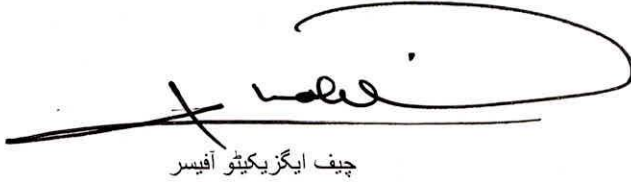 چیف ایگزیکیٹو آفیسر